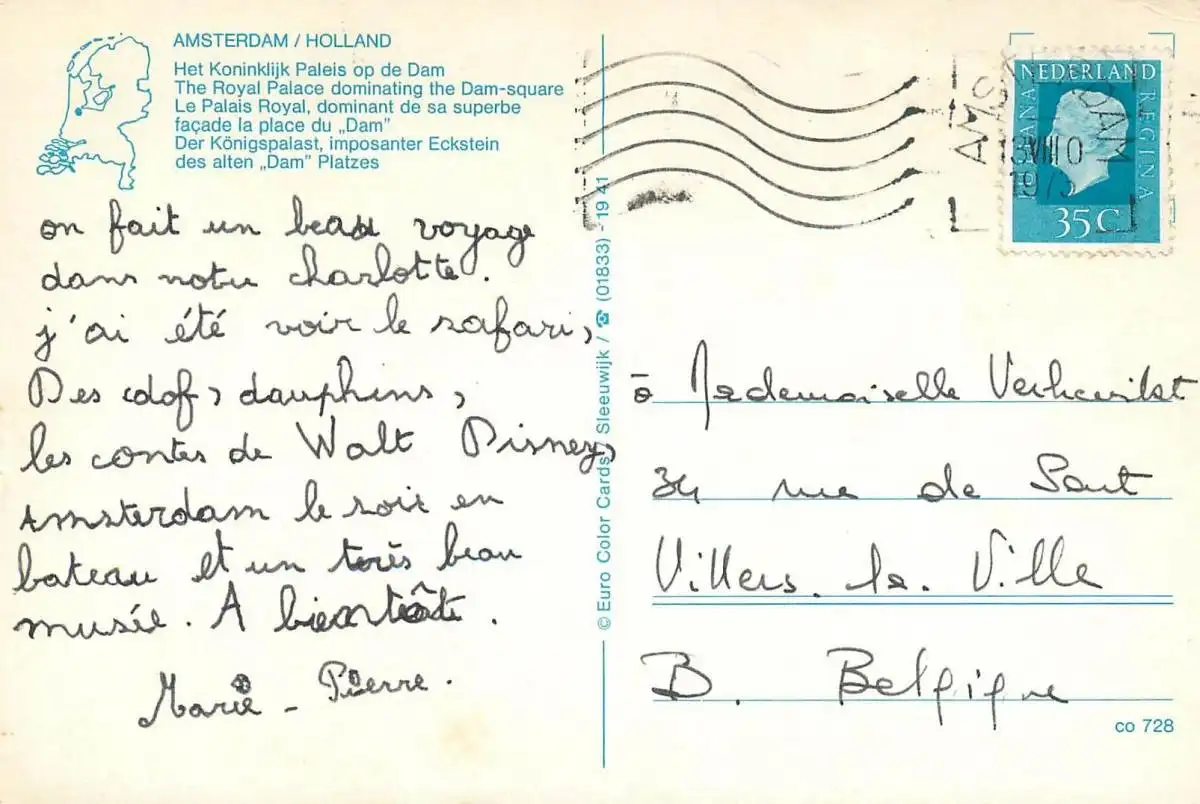 AMSTERDAM / HOLLAND
Het Koninklijk Paleis op de Dam
The Royal Palace dominating the Dam-square
Le Palais Royal, dominant de sa superbe
façade la place du „Dam”
Der Königspalast, imposanter Eckstein
des alten „Dam” Platzes
on fait un beau voyage
dans notre charlotte.
j'ai été voir le safari,
Des dauphins,
les contes de Walt Disney,
Amsterdam le soir en
bateau et un très beau
musée. A bientôt.
Marie - Pierre.
© Euro Color Cards, Sleeuwijk / ☎ (01833) - 19 41
NEDERLAND
REGINA
35 C
AMS DAM
VIII
à Mademoiselle
34 rue de
Villers. la. Ville
B. Belgique
co 728